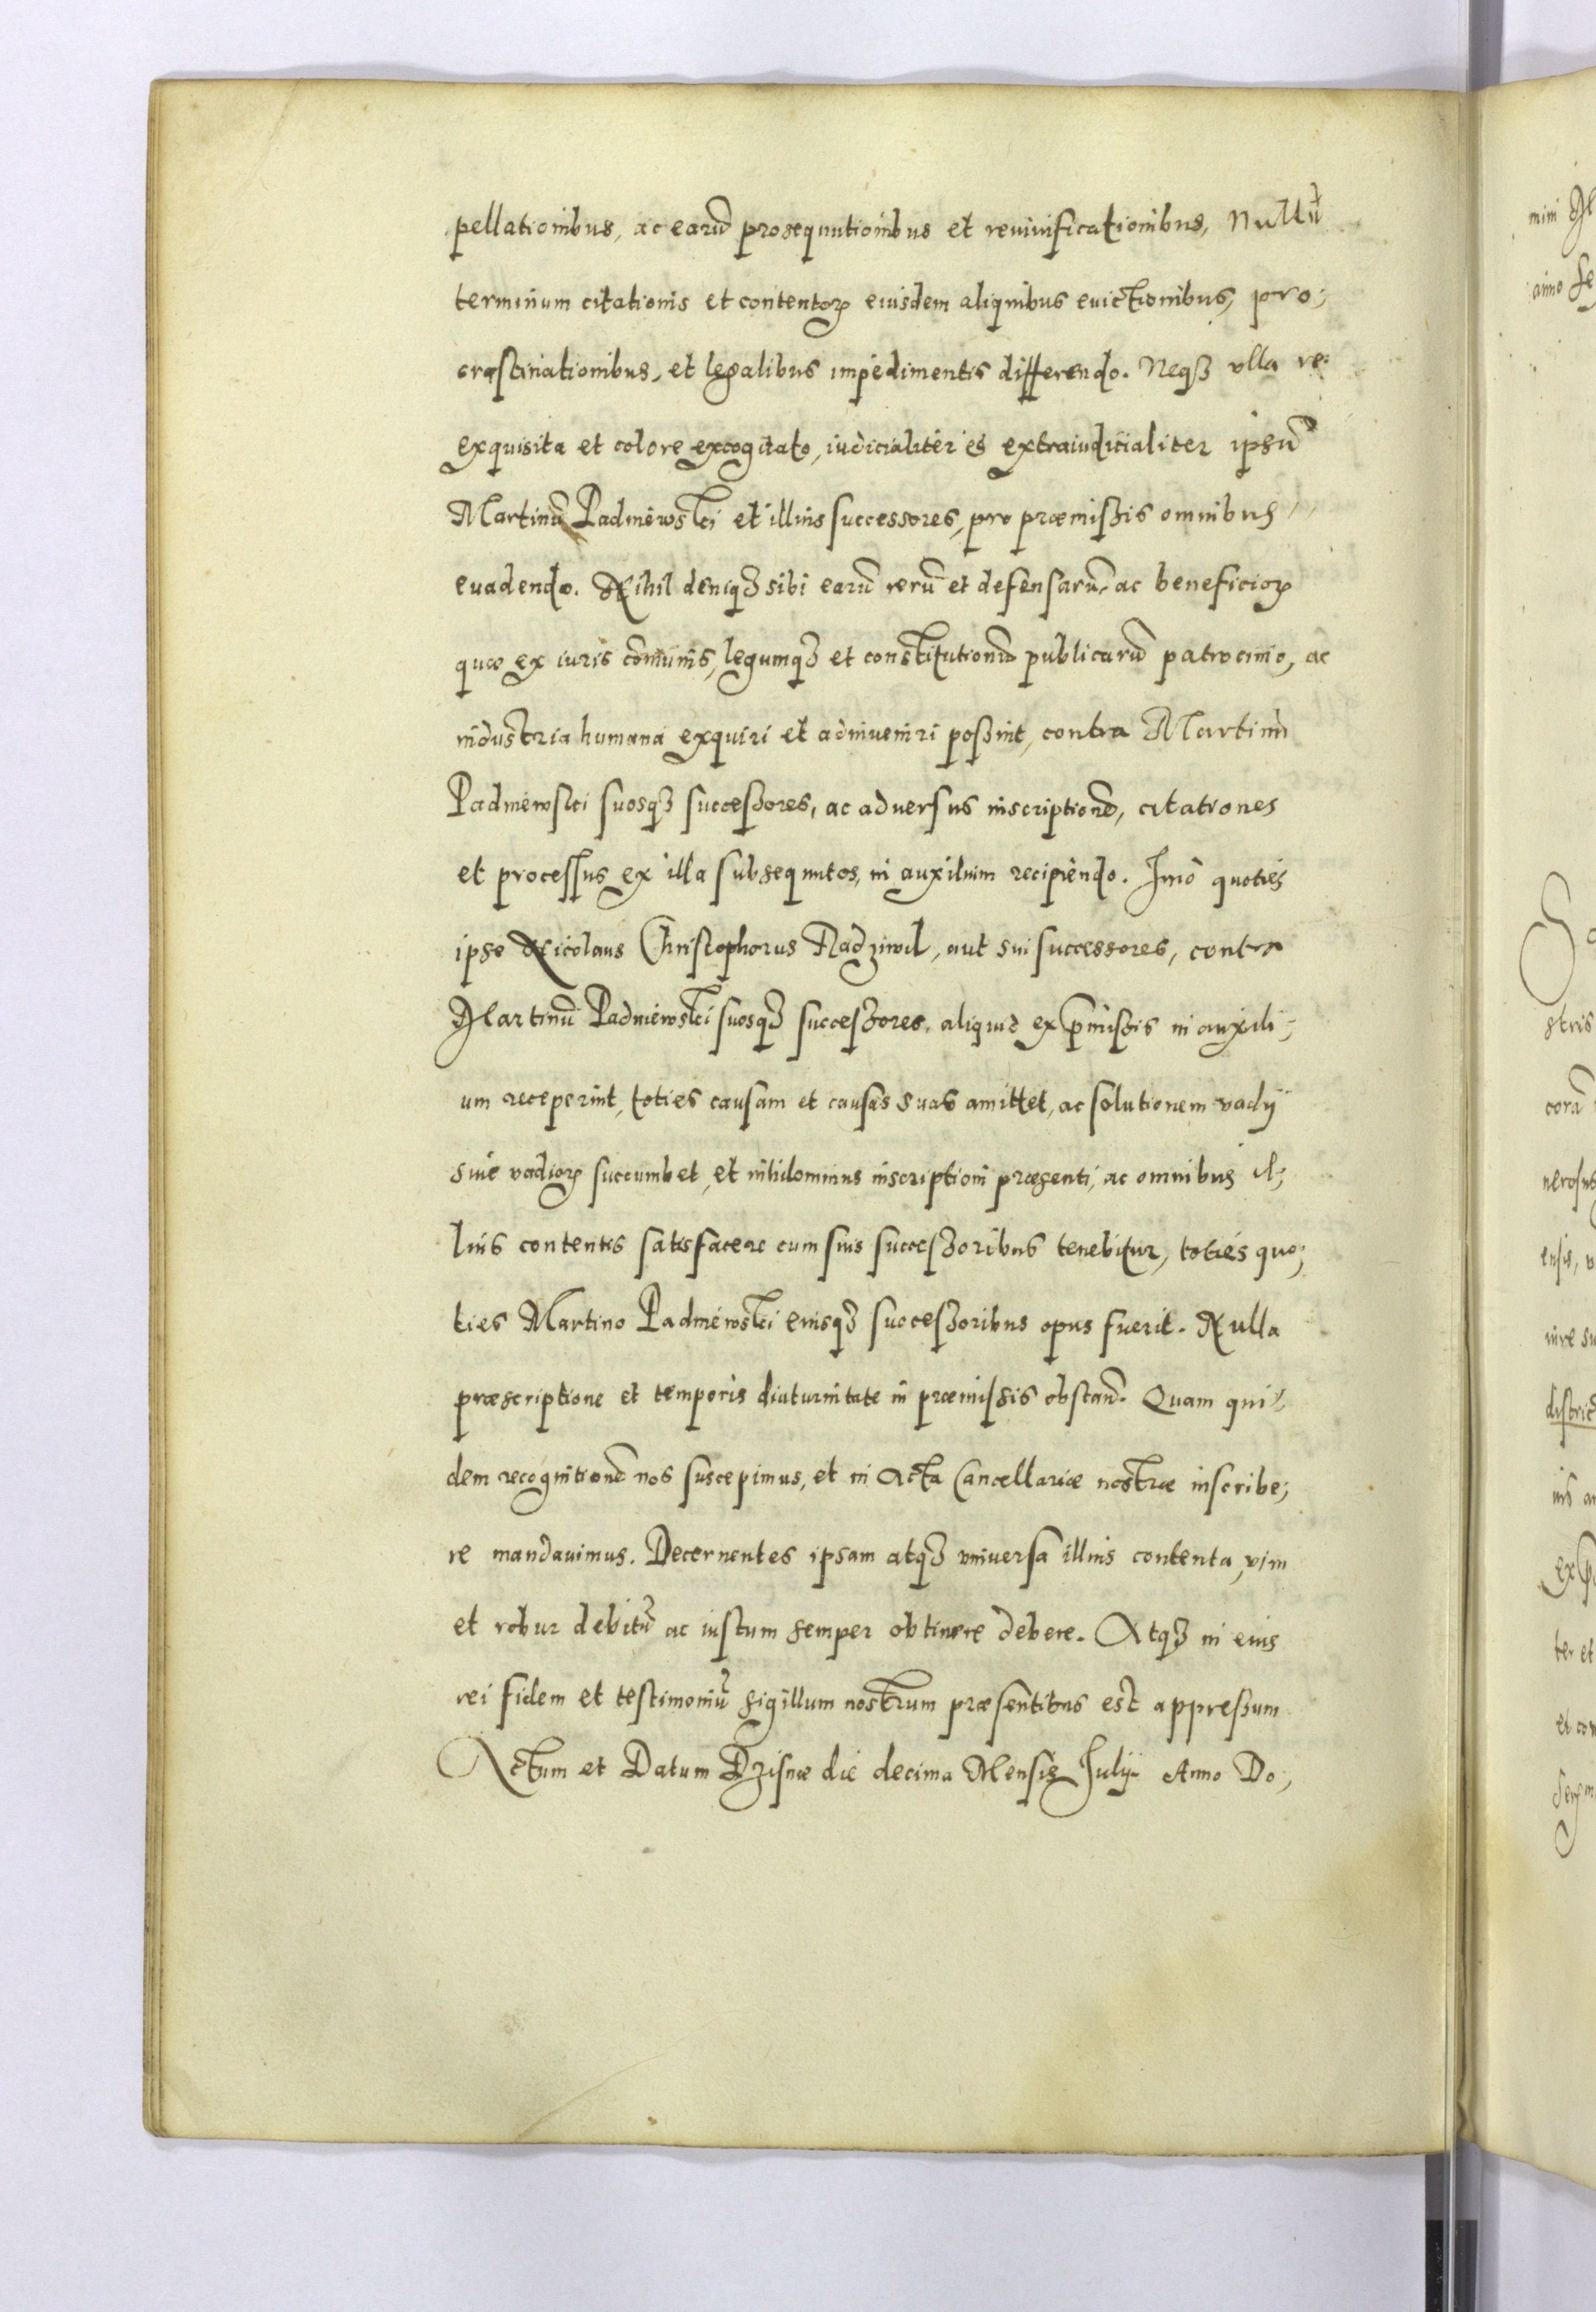 pellationibus, ac earū prosequutionibus et reuiuificationibus, Nullū
terminum citationis et contentoꝝ eiusdem aliquibus euictionibus, pro;
crastinationibus, et legalibus impedimentis differendo. Neqꝫ vlla re
exquisita et colore excogitato, iudicialiter et extraiudicialiter ipsū
Martinū Padniewski et illius successores, pro præmißis omnibus
euadendo. Nihil deniqꝫ sibi earū rerū et defensarū, ac beneficioꝝ
quæ ex iuris cōmunis, legumqꝫ et constitutionū publicarū patrocinio, ac
industria humana exquiri et adinueniri poßint, contra Martinū
Padniewski suosqꝫ succeßores, ac aduersus inscriptionē, citationes
et processus ex illa subsequutos, in auxilium recipiendo. Imò quoties
ipse Nicolaus Christophorus Radziwil, aut sui successores, contra
Martinū Padniewski suosqꝫ succeßores, aliquid ex p̄mißis in auxili;
um receperint, toties causam et causas suas amittet, ac solutionem vadij
siue vadioꝝ succumbet, et nihilominus inscriptioni præsenti, ac omnibus il;
lius contentis satisfacere cum suis succeßoribus tenebitur, toties quo;
ties Martino Padniewski eiusqꝫ succeßoribus opus fuerit. Nulla
præscriptione et temporis diuturnitate in præmissis obstan̄. Quam qui;
dem recognitionē nos suscepimus, et in Acta Cancellariæ nostræ inscribe;
re mandauimus. Decernentes ipsam atqꝫ vniuersa illius contenta, vim
et robur debitū ac iustum semper obtinere debere. Atqꝫ in eius
rei fidem et testimoniū sigillum nostrum præsentibus est appreßum
Actum et Datum Dzisnæ die decima Mensis Julij Anno Do;